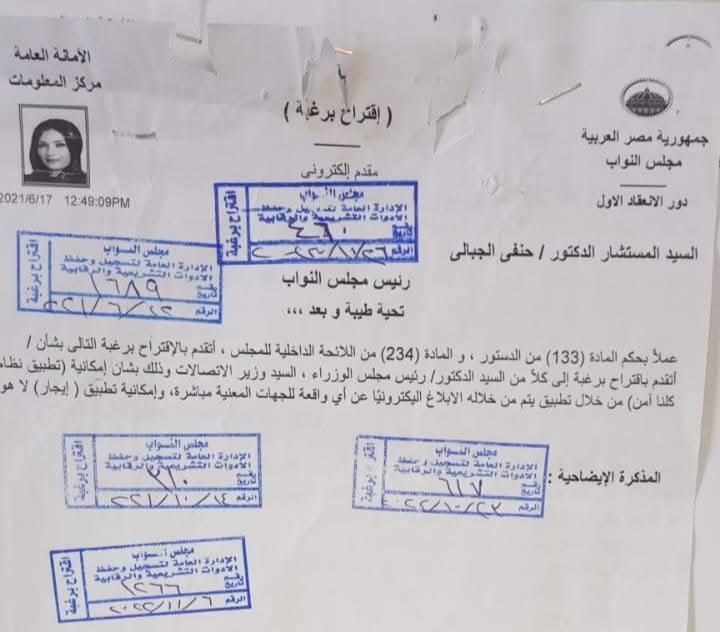 الأمانة العامة
مركز المعلومات
( إقتراح برغبة )
جمهورية مصر العربية
مجلس النواب
مقدم إلكترونى
دور الانعقاد الاول
2021/6/17 12:49:09PM
مجلس النواب
الإدارة العامة لتسجيل وحفظ
الادوات التشريعية والرقابية
إقتراح برغبة
الرقم
السيد المستشار الدكتور / حنفى الجبالى
مجلس النواب
الإدارة العامة لتسجيل وحفظ
الادوات التشريعية والرقابية
رقم ١٦٨٩
تاريخ
الرقم
إقتراح برغبة
رئيس مجلس النواب
تحية طيبة و بعد ،،،
عملاً بحكم المادة (133) من الدستور ، و المادة (234) من اللائحة الداخلية للمجلس ، أتقدم بالإقتراح برغبة التالى بشأن /
أتقدم باقتراح برغبة إلى كلاً من السيد الدكتور/ رئيس مجلس الوزراء ، السيد وزير الاتصالات وذلك بشان إمكانية (تطبيق نظا
كلنا آمن) من خلال تطبيق يتم من خلاله الابلاغ اليكترونيًا عن أي واقعة للجهات المعنية مباشرة، وإمكانية تطبيق ( إيجار) لا هو
مجلس النواب
الإدارة العامة لتسجيل وحفظ
الادوات التشريعية والرقابية
رقم ٣١٠
تاريخ
الرقم
إقتراح برغبة
مجلس النواب
الإدارة العامة لتسجيل وحفظ
الادوات التشريعية والرقابية
رقم ٦١٧
تاريخ
الرقم ٢٠٢٢/١٠/٢٣
إقتراح برغبة
المذكرة الإيضاحية :
مجلس النواب
الإدارة العامة لتسجيل وحفظ
الادوات التشريعية والرقابية
رقم ١٢٦٦
تاريخ
الرقم ٢٠٢٢/١١/٦
إقتراح برغبة